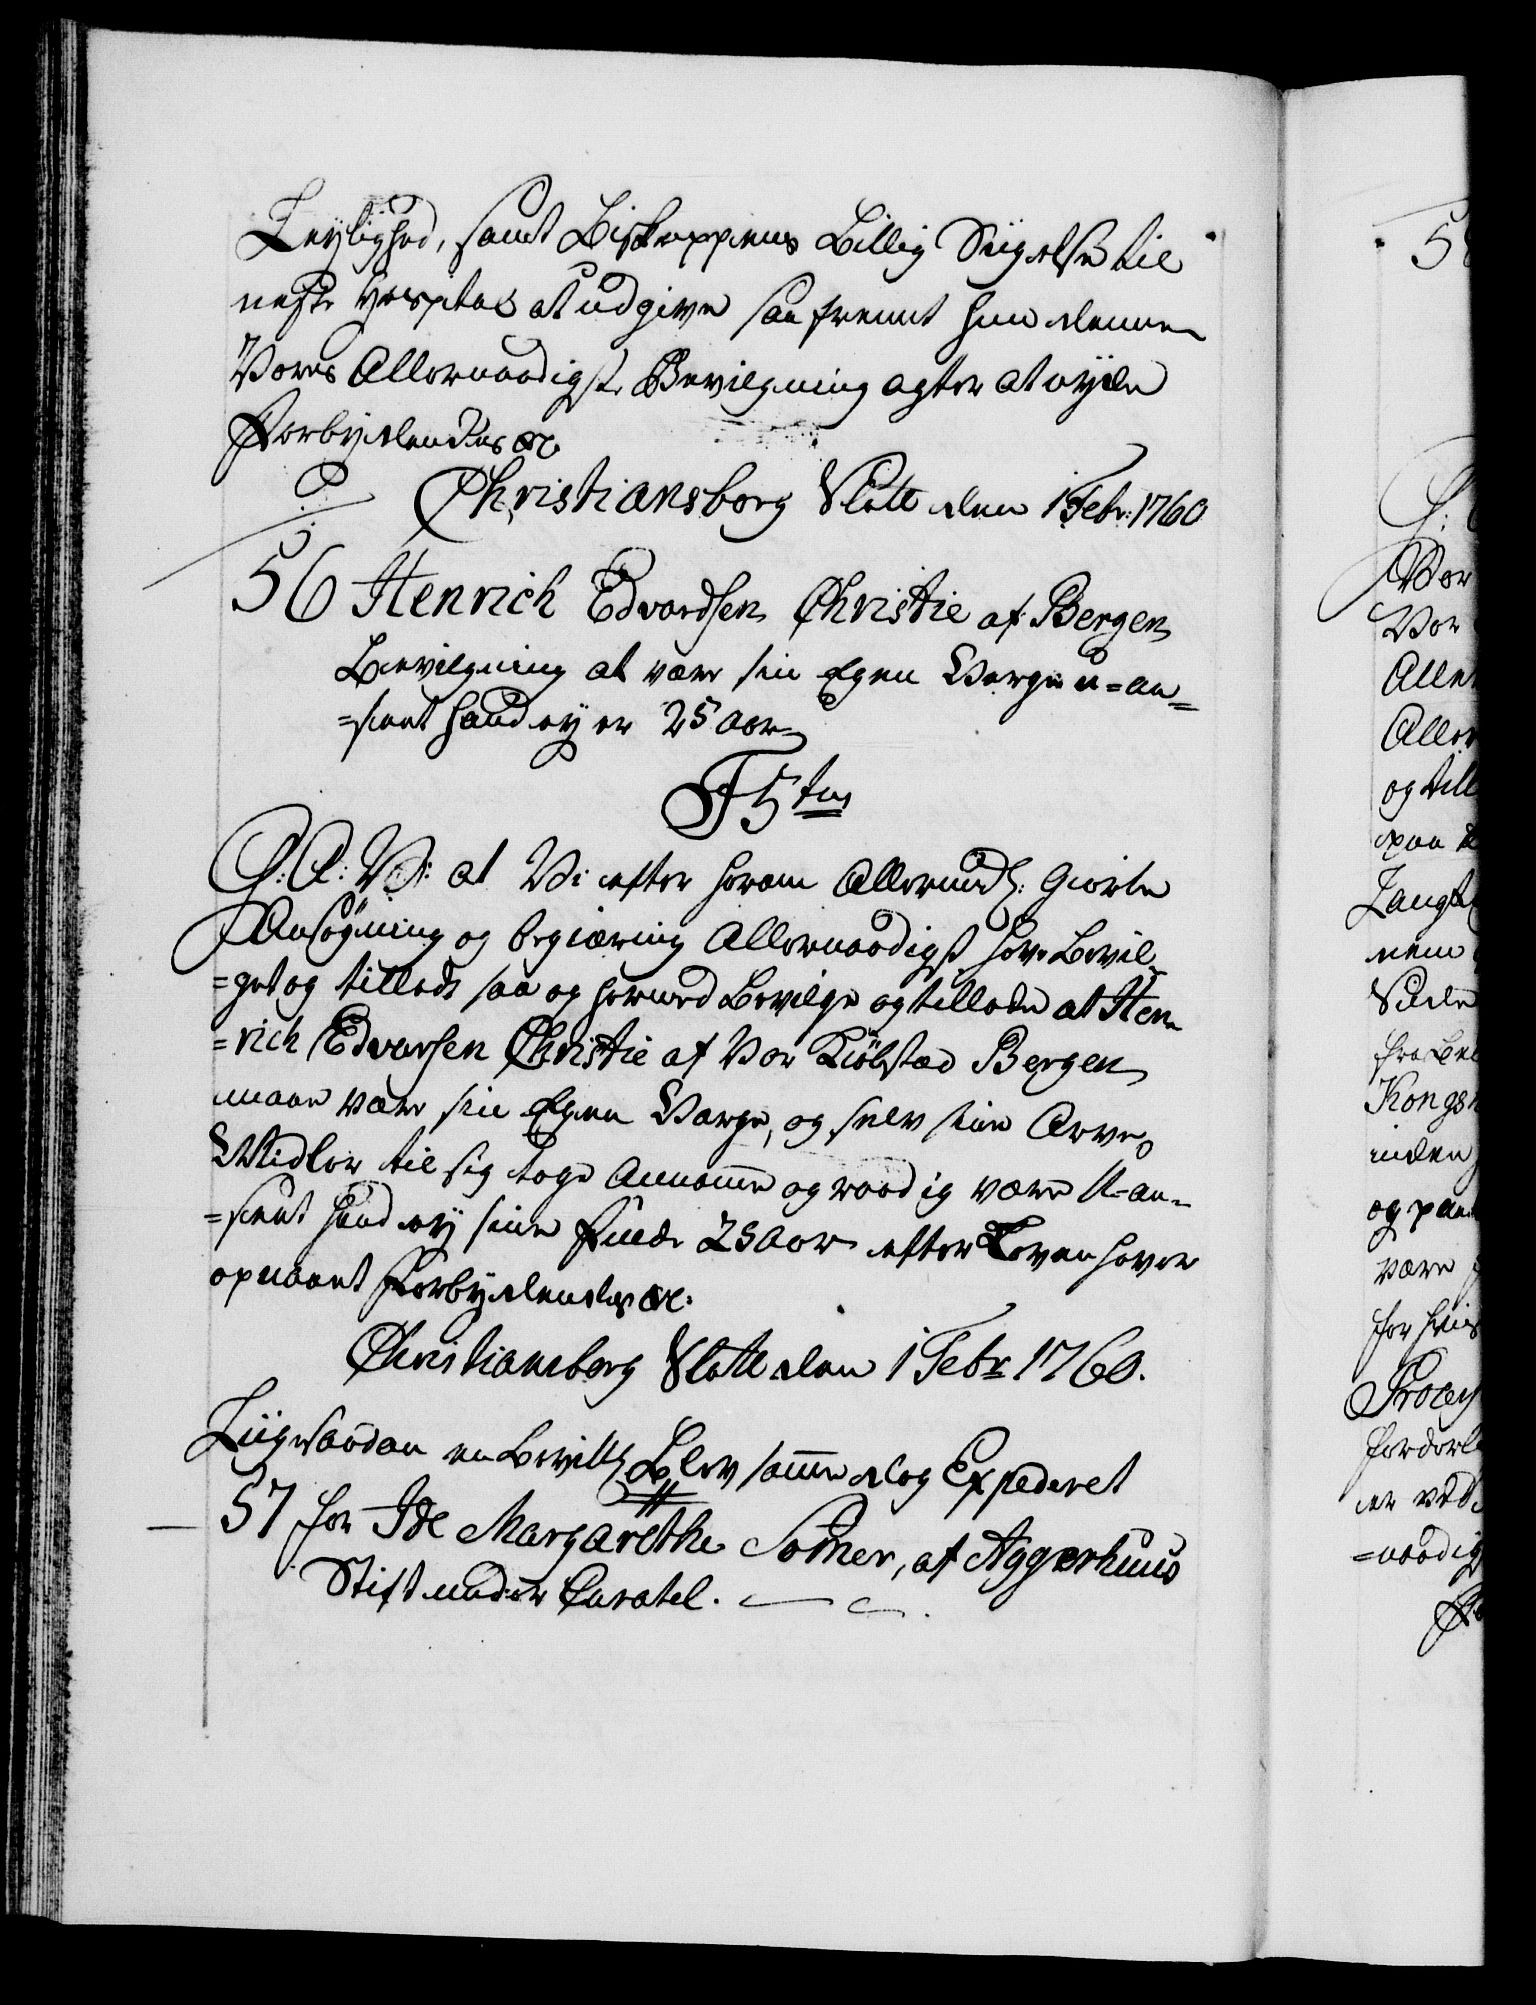 Leylighed, samt Biskoppens Billig Sigelse til
neste Hospital at udgive saa fremt hun denne
Vores Allernaadigste Bevilgning agter at nyde
Forbydendes &c.
Christiansborg Slott den 1 Febr: 1760
56 Henrich Edvardsen Christie af Bergen
Bevilgning at være sin Egen Værge u-an-
=seet hand ey er 25 aar
F5tus
G: A: V: at Vi efter herom Allerund: giorte
Ansøgning og begiæring Allernaadigst have bevil-
=get og tilladt saa og hermed bevilge og tillade at Hen-
=rich Edvarsen Christie af Vor Kiøbstæd Bergen
maae være sin Egen Værge, og selv sine Arve
Midler til sig tage Annamme og raadig være U-an-
=seet hand ey sine Fulde 25 Aar efter Loven haver
opnaaet Forbydendes &c.
Christiansborg Slott den 1 Febr 1760.
Liigesaadan en bevilling blev samme dag Expederet
57 for Ide Margarethe Somer, af Aggerhuus
Stift under Curatel.
5
G:
Vor
Vor
Aller
Aller
og till
paa
Langt
nem
Side
fra
Kongs
inden
og paa
være
for hvis
Process
fordeel
er ved
=naadig